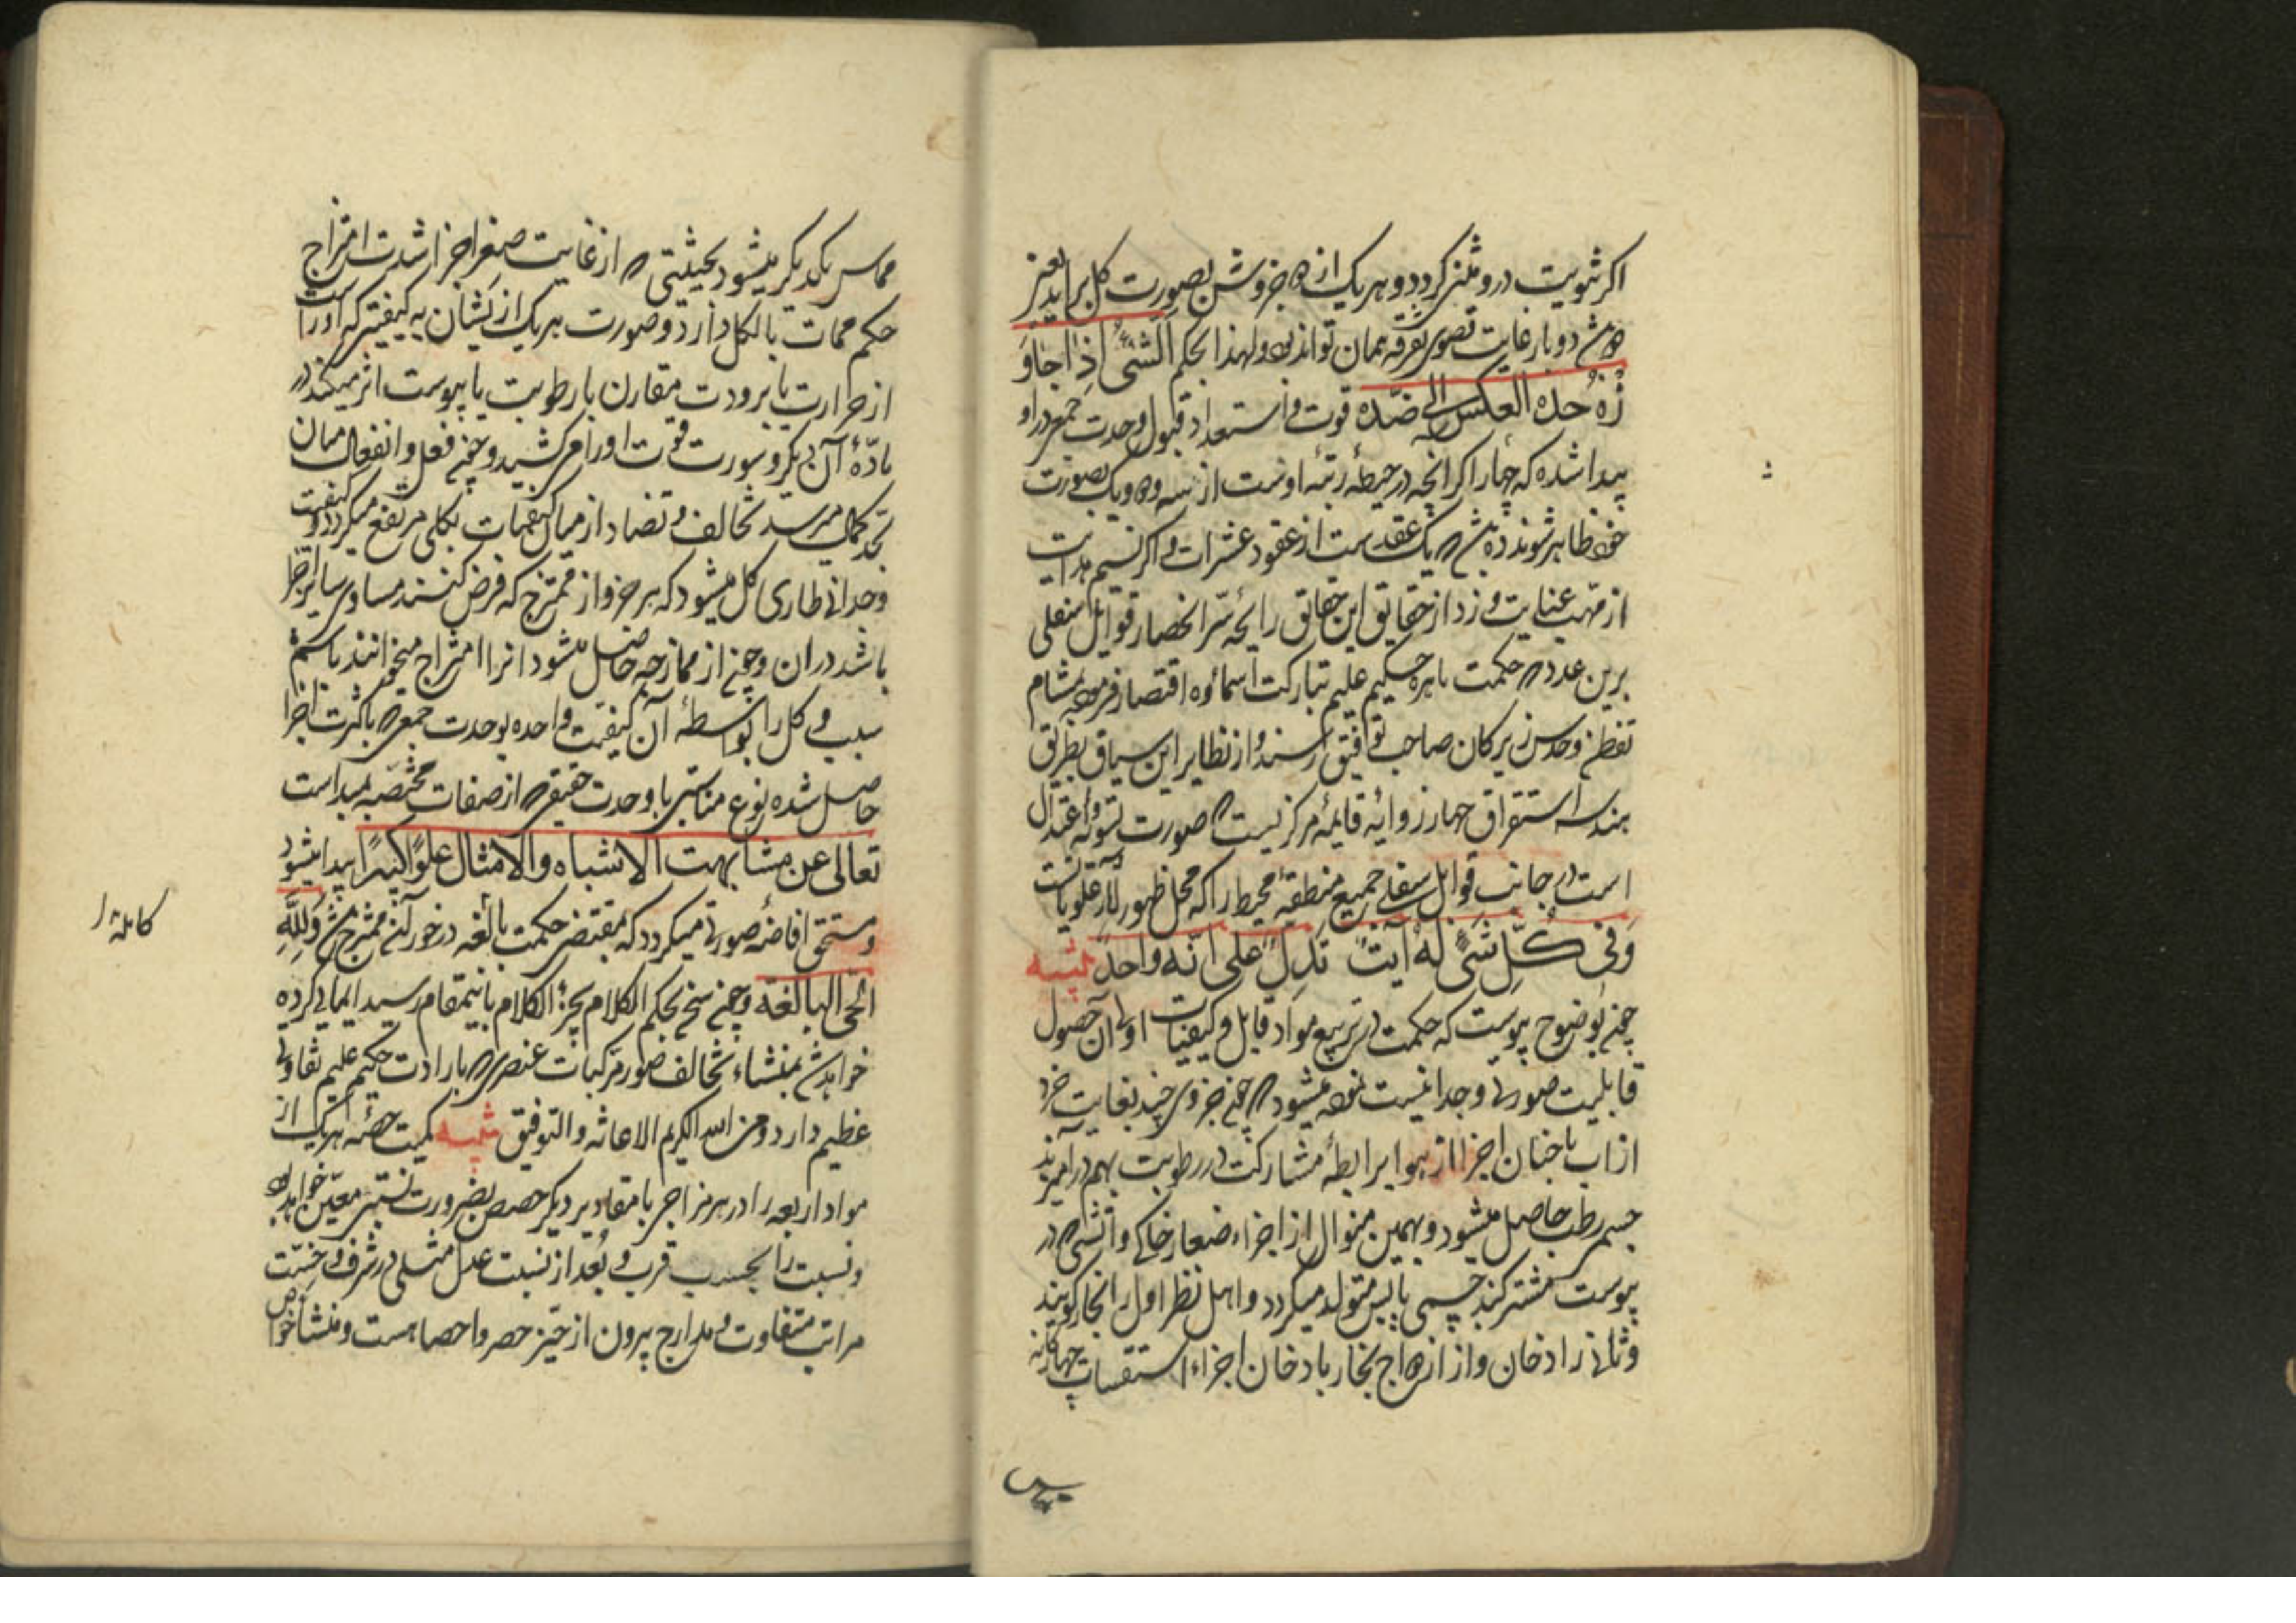 اکر ثنویت درو مثنی کردد و هر یک از دو جزوش بصورت کل براید بعینه
دو بار غایت قصوی تفرقه همان تواند بود ولهذا بحکم الشئ اذا جاو
زه حده العکس الی ضده قوت و استعداد قبول وحدت جمعی در او
پیدا شده که چهار اکر انچه در حیطهٔ رتبهٔ اوست از سه و دو و یک بصورت
خود ظاهر شوند ده باشد که یک عقدست از عقود عشرات و اکر نسیم هدایت
از مهب عنایت وزد از حقایق این حقایق رایحه سر انحصار قوابل سفلی
برین عدد که حکمت باهره حکیم علیم تبارکت اسماؤه اقتصار فرموده بمشام
تفطن و حدس زیرکان صاحب توفیق رسد و از نظایر این سیاق بطریق
هندسه استقراق چهار زوایهٔ قایمهٔ مرکزیست که صورت تسویه و اعتدال
است در جانب قوابل سفلی جمیع منطقهٔ محیط را که محل ظهور آثار علویاتست
وفی کل شئ له آیت تدل علی انه واحد تنبیه
چون بوضوح پیوست که حکمت در تربیع مواد قابل و کیفیات اولی ان حصول
قابلیت صورتی وحدانیست نموده میشود که چون جزوی چند بغایت خرد
از اب با چنان اجزا از هوا برابطهٔ مشارکت در رطوبت بهم درامیزند
جسمی رطب حاصل میشود و بهمین منوال از اجزاء صغار خاکی و اتشی که در
یبوست مشترکند جسمی یابس متولد میکردد و اهل نظر اول را بخار کویند
و ثانی را دخان و از ازدواج بخار با دخان اجزاء استقسات چهارکانه
مماس یکدیکر میشود بحیثیتی که از غایت صغر اجزا و شدت امتزاج
حکم مماست بالکل دارد و صورت هر یک از یشان به کیفیتی که اوراست
از حرارت یا برودت مقارن با رطوبت یا یبوست اثر میکند در
مادهٔ آن دیکر و سورت قوت او را می شکند و چون فعل و انفعال میان
بحد کمال میرسد تخالف و تضاد از میان کیفیات بکلی مرتفع میکردد و کیفیت
وحدانی طاری کل میشود که هر جزو از ممتزج که فرض کنند مساوی سایر اجزا
باشد در ان و چون از ممازجه حاصل میشود انرا امتزاج میخوانند باسم
سبب و کل را بواسطهٔ آن کیفیت واحده بوحدت جمعی که با کثرت اجزا
حاصل شده نوع مناسبتی با وحدت حقیقی که از صفات مختصه مبداست
تعالی عن مشابهت الاشباه والامثال علوا کبیرا پیدا میشود
و مستحق افاضهٔ صورتی میکردد که مقتضی حکمت بالغه در خور آن ممتزج باشد ولله
الحجة البالغه و چون سخن بحکم الکلام یجر الکلام باینمقام رسید ایمائی کرده
خواهد شد بمنشاء تخالف صور مرکبات عنصری که بارادت حکیم علیم تفاوتی
عظیم دارد و من الله الکریم الاعانه والتوفیق تنبیه کمیت حصهٔ هر یک از
مواد اربعه را در هر مزاجی با مقادیر دیکر حصص بضرورت نسبتی معین خواهد بود
و نسبت را بحسب قرب و بعد از نسبت عدل مثلی در شرف و خست
مراتب متفاوت و مدارج بیرون از حیز حصر و احصا هست و منشأ خواص
کامله